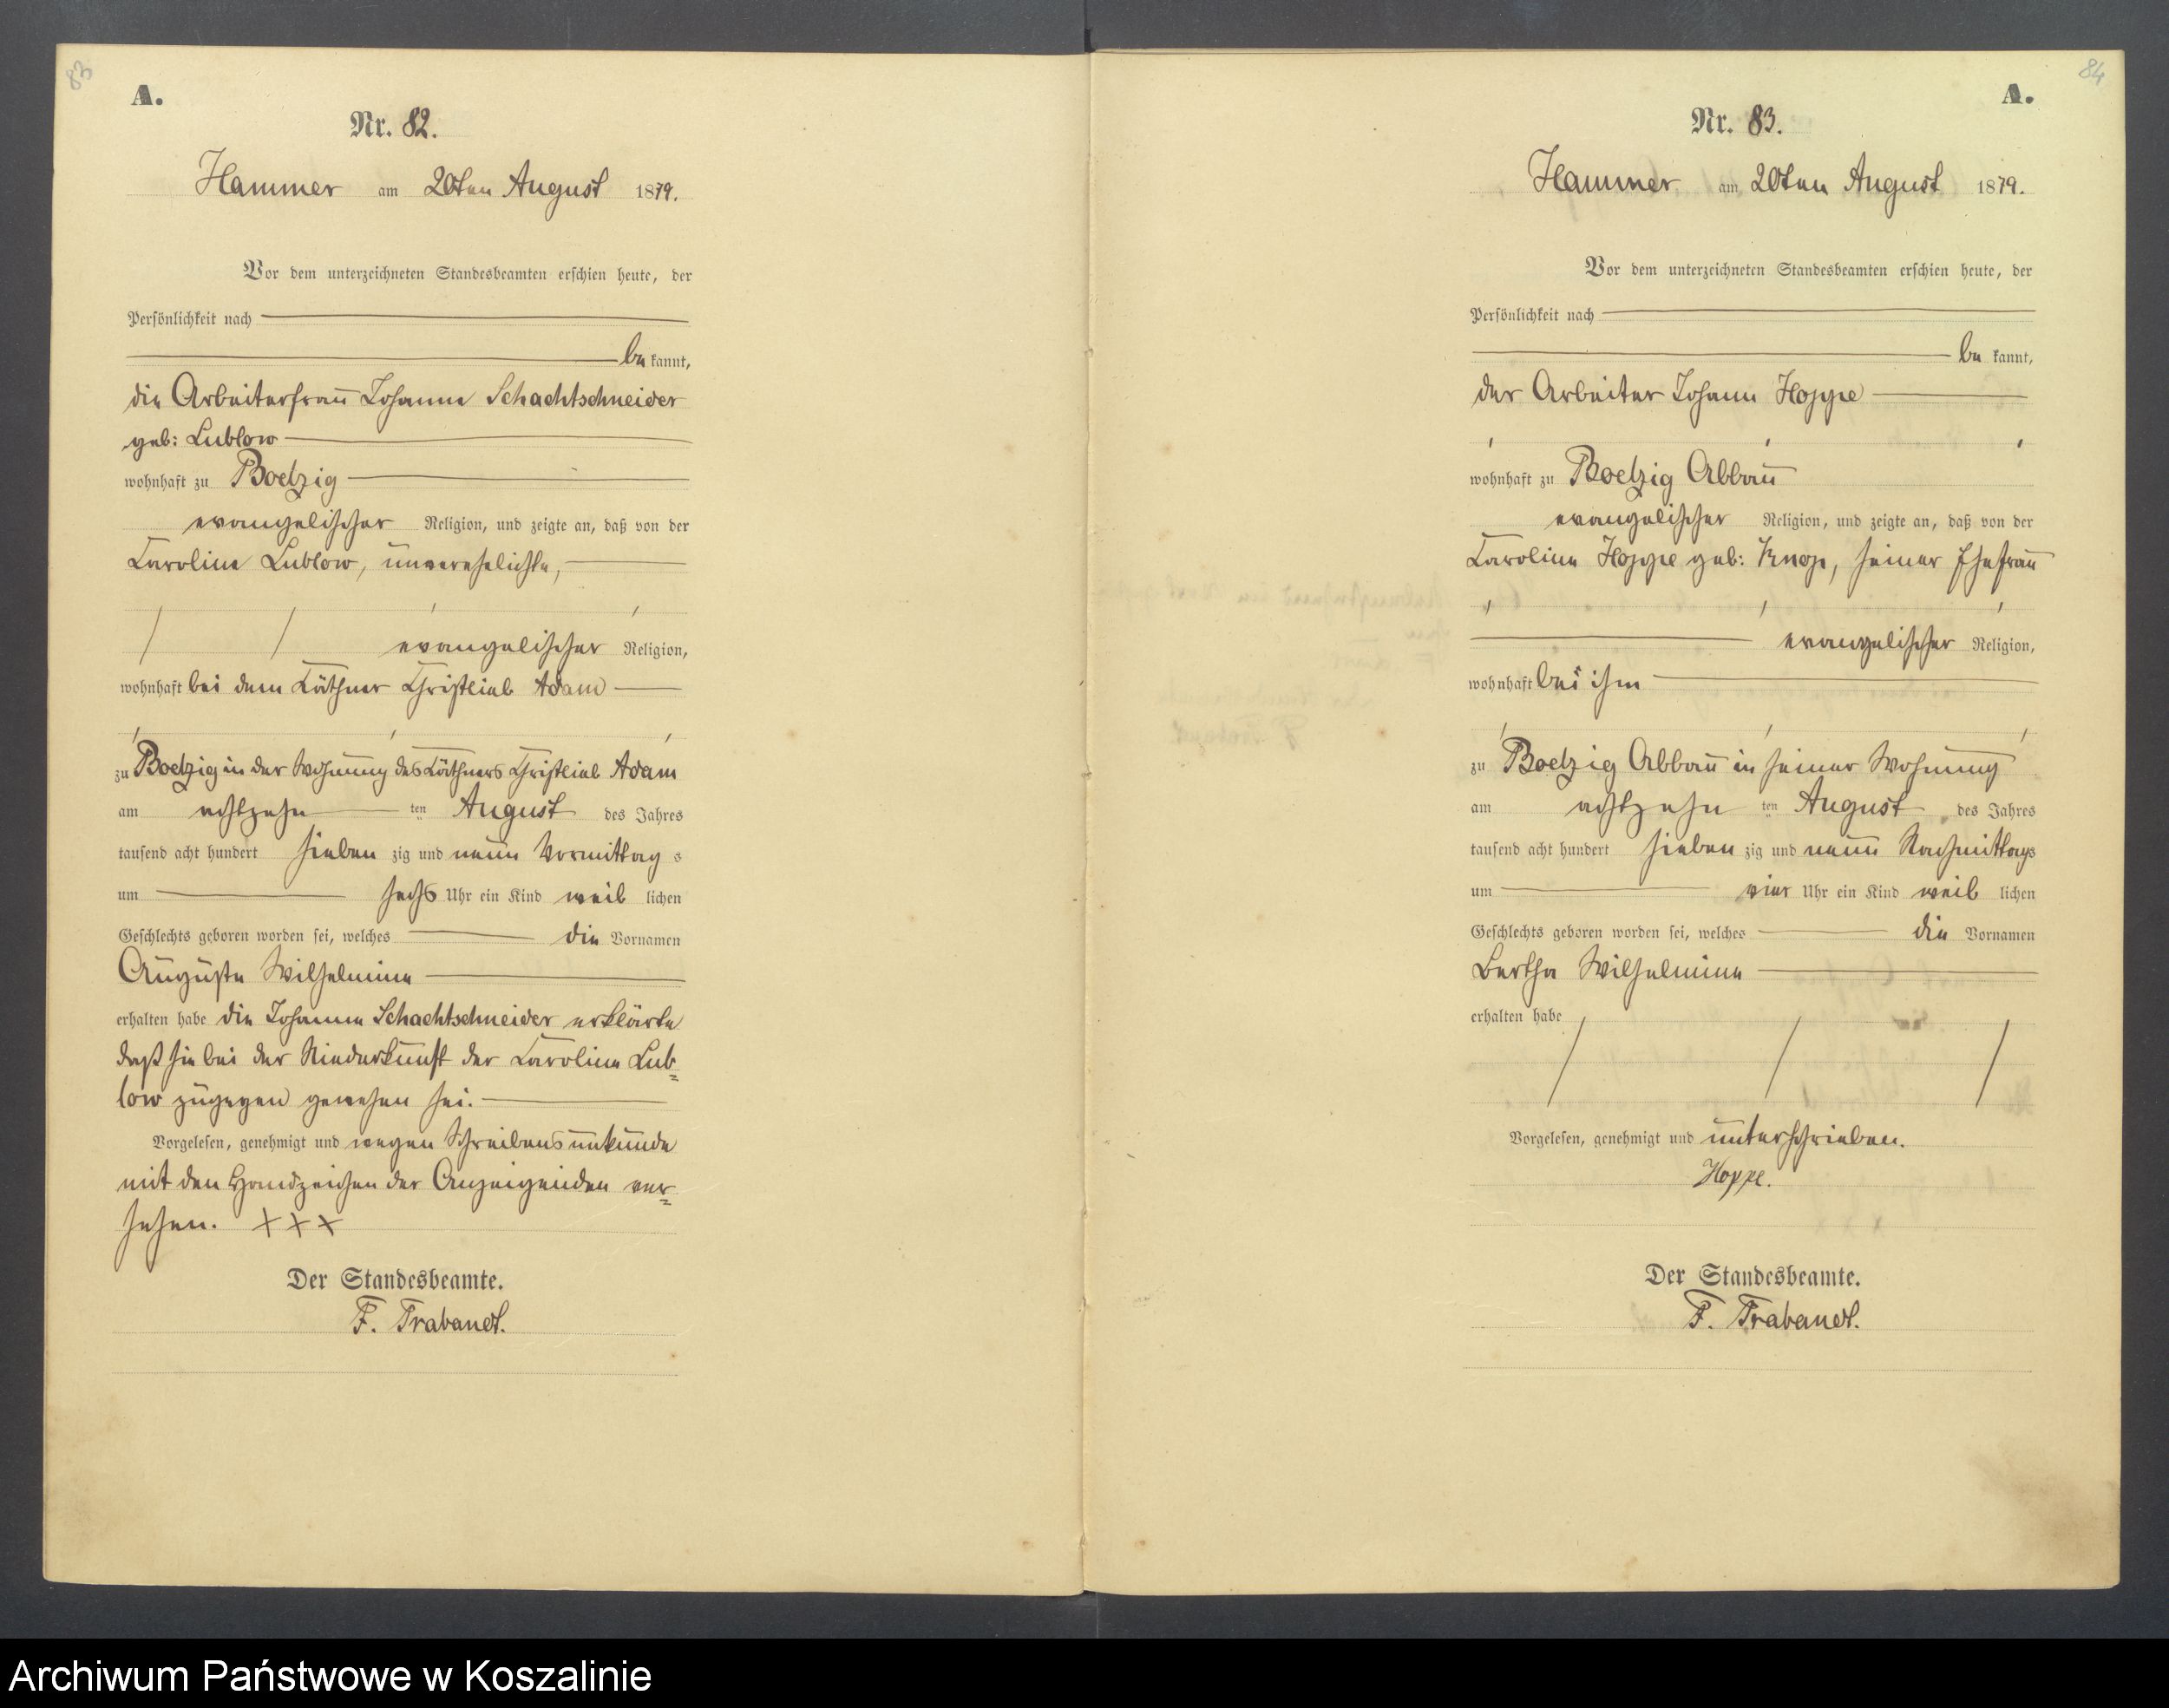 83
A.
Nr. 82.
Hammer am 20ten August 1879.
Vor dem unterzeichneten Standesbeamten erschien heute, der
Persönlichkeit nach
be kannt,
die Arbeiterfrau Johanne Schachtschneider
geb: Lublow
wohnhaft zu Boetzig
evangelischer Religion, und zeigte an, daß von der
Caroline Lublow, unverehelichte,
evangelischer Religion,
wohnhaft bei dem Käthner Christlieb Adam
zu Boetzig in der Wohnung des Käthners Christlieb Adam
am achtzehn ten August des Jahres
tausend acht hundert sieben zig und neun Vormittag s
um sechs Uhr ein Kind weib lichen
Geschlechts geboren worden sei, welches die Vornamen
Auguste Wilhelmine
erhalten habe die Johanne Schachtschneider erklärte
daß sie bei der Niederkunft der Caroline Lub=
low zugegen gewesen sei.
Vorgelesen, genehmigt und wegen Schreibensunkunde
mit den Handzeichen der Anzeigenden ver=
sehen. XXX
Der Standesbeamte.
F. Trabandt.
84
A.
Nr. 83.
Hammer am 20ten August 1879.
Vor dem unterzeichneten Standesbeamten erschien heute, der
Persönlichkeit nach
be kannt,
der Arbeiter Johann Hoppe
wohnhaft zu Boetzig Abbau
evangelischer Religion, und zeigte an, daß von der
Caroline Hoppe geb: Knop, seiner Ehefrau
evangelischer Religion,
wohnhaft bei ihm
zu Boetzig Abbau in seiner Wohnung
am achtzehn ten August des Jahres
tausend acht hundert sieben zig und neun Nachmittags
um vier Uhr ein Kind weib lichen
Geschlechts geboren worden sei, welches die Vornamen
Bertha Wilhelmine
erhalten habe
Vorgelesen, genehmigt und unterschrieben.
Hoppe.
Der Standesbeamte.
F. Trabandt.
Archiwum Państwowe w Koszalinie